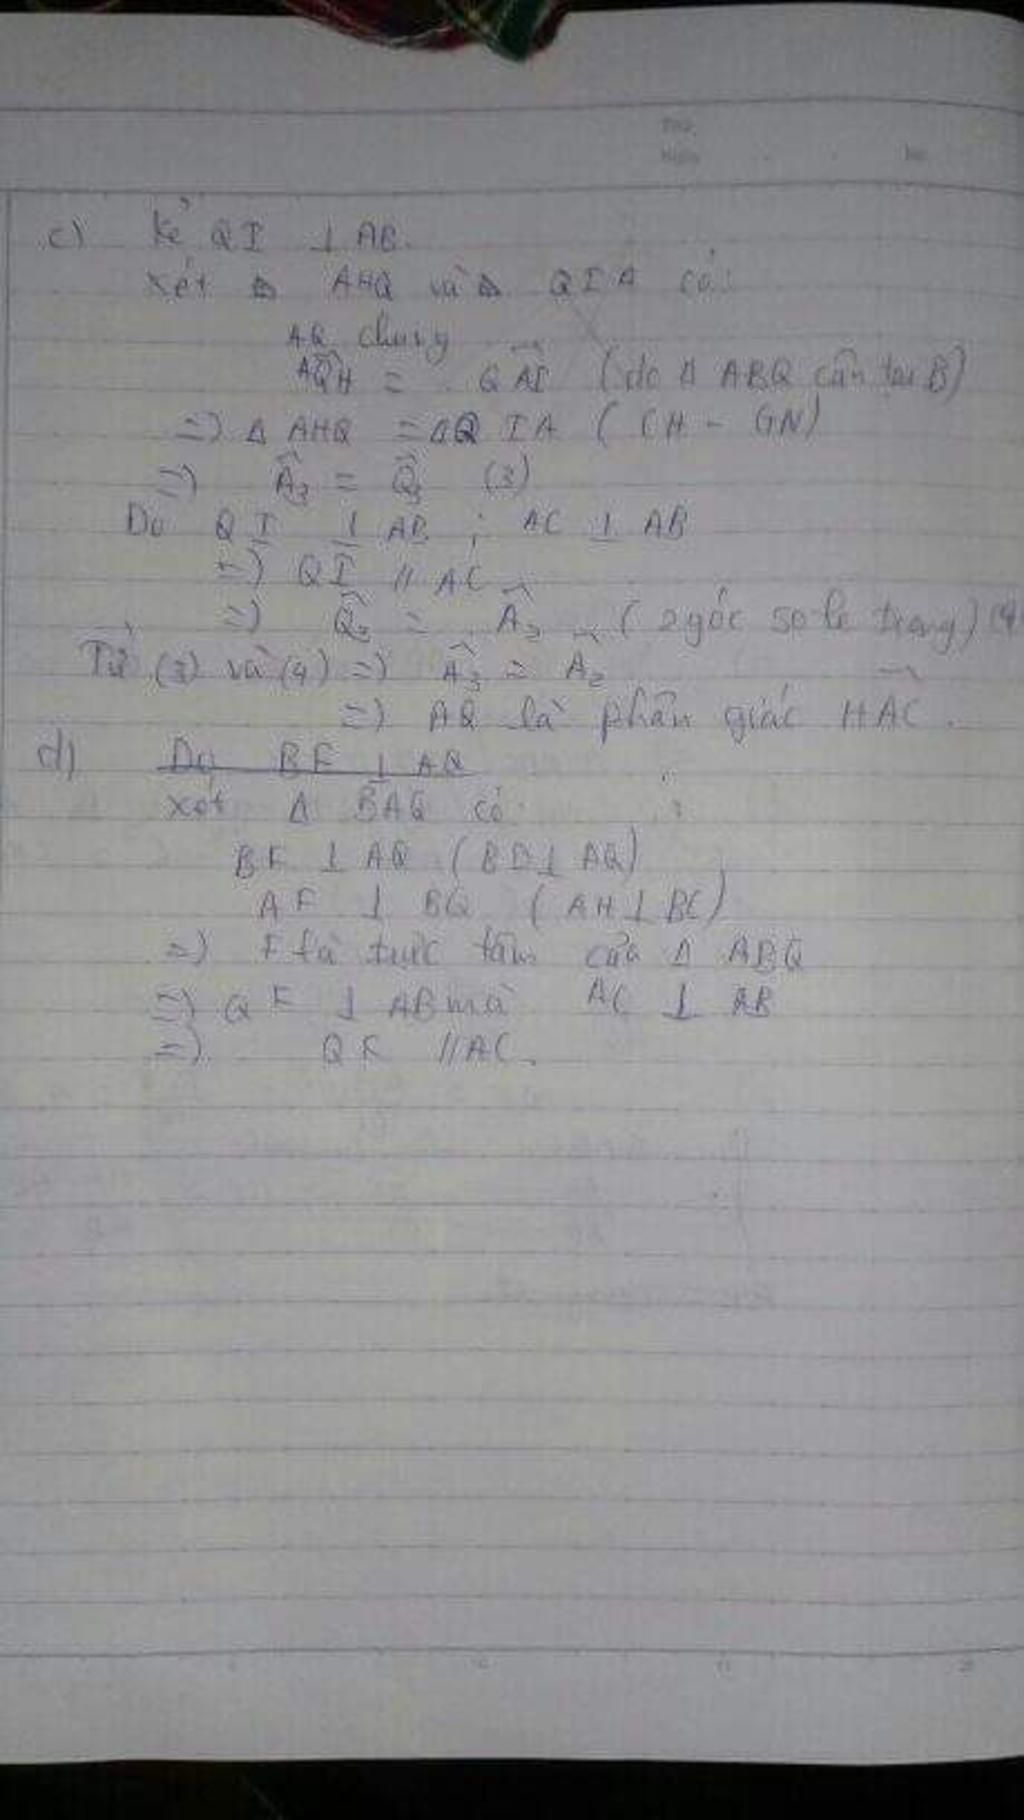 c) Kẻ QI ⊥ AB.
Xét Δ AHQ và Δ QIA có:
AQ chung
AQ̂H = QÂI (do Δ ABQ cân tại B)
=> Δ AHQ = ΔQIA (CH - GN)
=> Â₃ = Q̂₃ (3)
Do QI ⊥ AB ; AC ⊥ AB
=> QI // AC
=> Q̂₃ = Â₂ (2 góc so le trong) (4)
Từ (3) và (4) => Â₃ = Â₂
=> AQ là phân giác HÂC.
d) Do BF ⊥ AQ
Xét Δ BAQ có :
BF ⊥ AQ (BD ⊥ AQ)
AF ⊥ BQ (AH ⊥ BC)
=> F là trực tâm của Δ ABQ
=> QF ⊥ AB mà AC ⊥ AB
=> QF // AC.